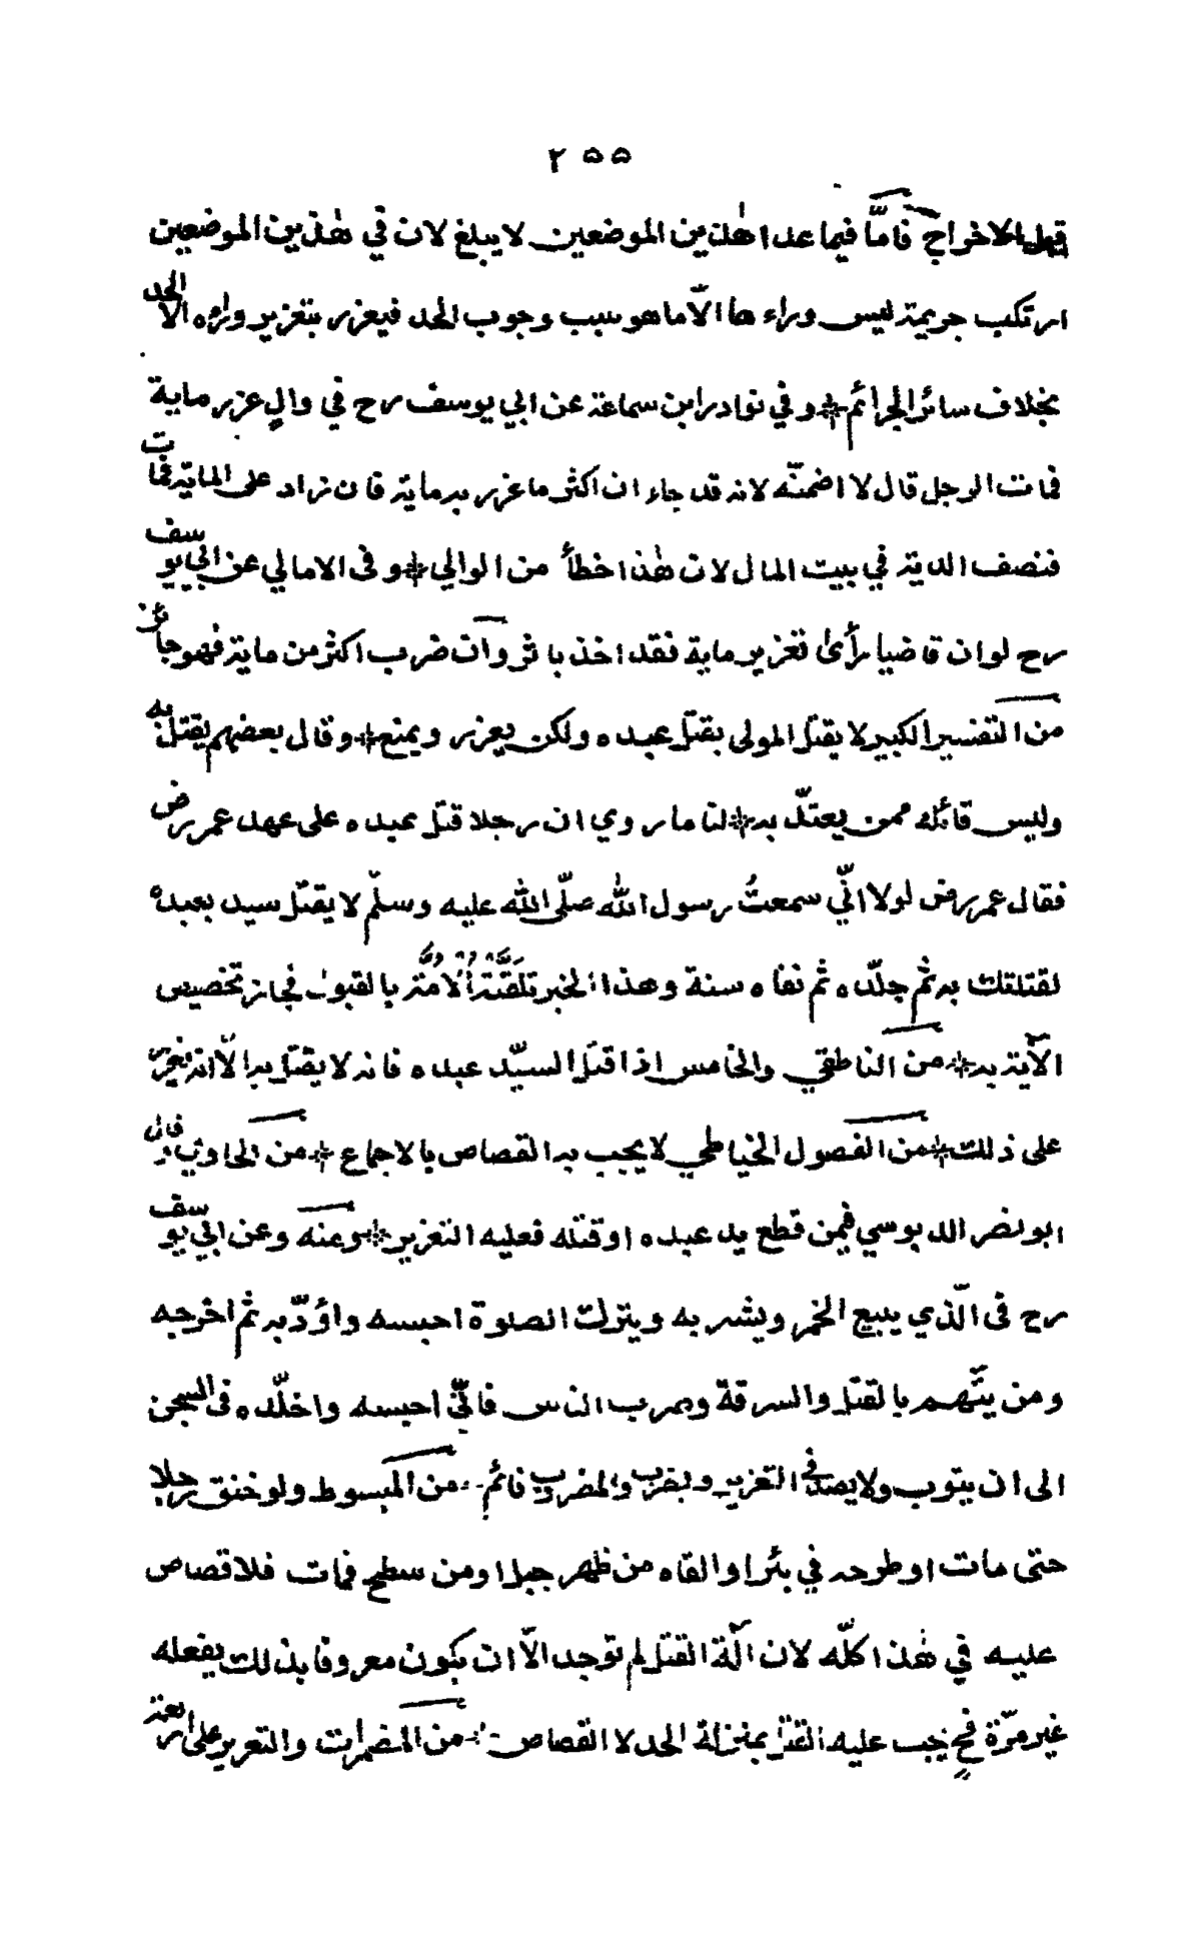 ٢٥٥
قبل الاخراج فامّا فيما عدا هٰذين الموضعين لا يبلغ لان في هٰذين الموضعين
ارتكب جريمة ليس وراء ها الّا ما هو سبب وجوب الحد فيعزر بتعزير وراءه الا الحد
بخلاف سائر الجرائم * و في نوادر ابن سماعة عن ابي يوسف رح في والٍ عزر ماية
فمات الرجل قال لا اضمنّه لانه قد جاء ان اكثر ما عزر به ماية فان زاد على الماية فمات
فنصف الدية في بيت المال لان هٰذا خطأ من الوالي * و فى الامالي عن ابي يوسف
رح لو ان قاضيا رأى تعزير ماية فقد اخذ باثر وان ضرب اكثر من ماية فهو جائز
من التفسير الكبير لا يقتل المولى بقتل عبده ولكن يعزر ويمنع * وقال بعضهم يقتل به
وليس قائله ممن يعتدّ به * لنا ما روي ان رجلا قتل عبده على عهد عمر رض
فقال عمر رض لولا انّي سمعتُ رسول الله صلّى الله عليه وسلّم لا يقتل سيد بعبده
لقتلتك به ثم جلّده ثم نفاه سنة وهذا الخبر تلقّته الامّة بالقبول فجاز تخصيص
الآية به * من الناطفي والخامس اذا قتل السيّد عبده فانه لا يقتل به الّا انه يعزر
على ذلك * من الفصول الخياطي لا يجب به القصاص بالاجماع * من الحاوي وقال
ابو نصر الدبوسي فيمن قطع يد عبده او قتله فعليه التعزير * وعنه وعن ابي يوسف
رح فى الّذي يبيع الخمر ويشربه ويترك الصلوة احبسه واؤدّبه ثم اخرجه
ومن يتّهم بالقتل والسرقة وضرب الناس فانّي احبسه واخلّده فى السجن
الى ان يتوب ولا يصدف التعزير و يضرب والمضروب قائم * من المبسوط ولو خنق رجلا
حتى مات او طرحه في بئر او القاه من ظهر جبل او من سطح فمات فلا قصاص
عليه في هٰذا كلّه لان آلة القتل لم توجد الّا ان يكون معروفا بذلك يفعله
غير مرّة فح يجب عليه القتل بمنزلة الحد لا القصاص * من المضمرات والتعزير على اربعة